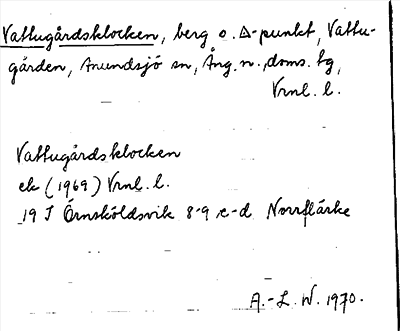 Vattugårdsklocken, berg o. Δ-punkt, Vattu-
gården, Anundsjö sn, Ång. n., doms. tg,
Vrnl. l.
Vattugårdsklocken
ek (1969) Vrnl. l.
19 J Örnsköldsvik 8-9 c-d Norrflärke
A.-L. W. 1970.